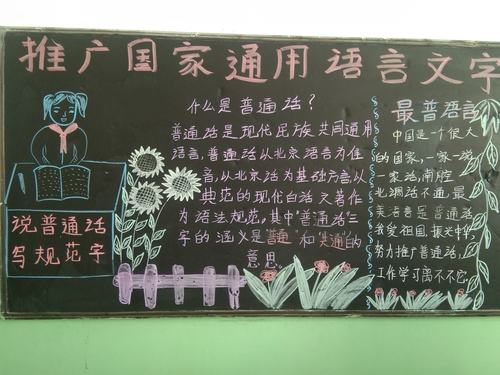 推广国家通用语言文字
说普通话
写规范字
什么是普通话?
普通话是现代民族共同通用
语言,普通话从北京语言为准
音,从北京话为基础方言以
典范的现代白话文著作
为语法规范,其中"普通话"三
字的涵义是"普通"和"共通"的
意思。
最普语言
中国是一个很大
的国家,一家一说
一家话,南腔
北调话不通,最
美语言是普通话
我爱祖国,振兴中华
努力推广普通话,
工作学习离不开它